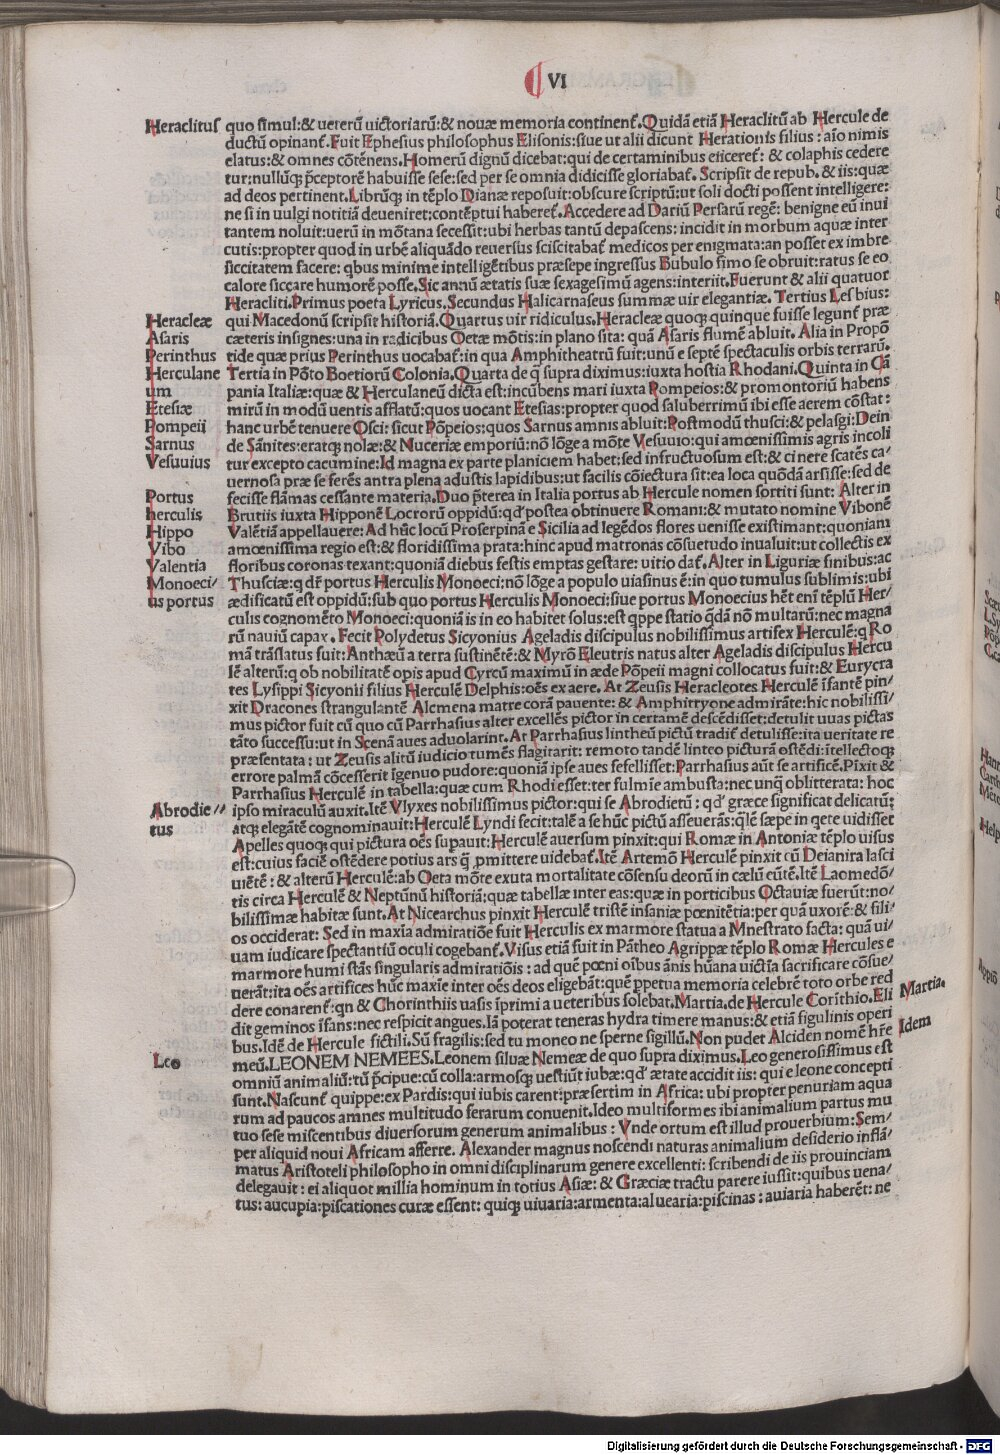 VI
Heraclitus quo simul:& ueterū uictoriarū:& nouæ memoria continent᷒. Quidā etiā Heraclitū ab Hercule de
ductū opinant᷒. Fuit Ephesius philosophus Elisonis:siue ut alii dicunt Herationis filius : aīo nimis
elatus:& omnes cōtēnens. Homerū dignū dicebat:qui de certaminibus eiiceret᷒: & colaphis cedere
tur:nullūq; p̄ceptorē habuisse sese:sed per se omnia didicisse gloriabat᷒. Scripsit de repub. & iis:quæ
ad deos pertinent. Librūq; in tēplo Dianæ reposuit:obscure scriptū:ut soli docti possent intelligere:
ne si in uulgi notitiā deueniret:contēptui haberet᷒. Accedere ad Dariū Persarū regē: benigne eū inui
tantem noluit:uerū in mōtana secessit:ubi herbas tantū depascens: incidit in morbum aquæ inter
cutis:propter quod in urbē aliquādo reuersus sciscitabat᷒ medicos per enigmata:an posset ex imbre
siccitatem facere: qbus minime intelligētibus præsepe ingressus Bubulo fimo se obruit:ratus se eo
calore siccare humorē posse. Sic annū ætatis suæ sexagesimū agens:interiit. Fuerunt & alii quatuor
Heracliti. Primus poeta Lyricus. Secundus Halicarnaseus summæ uir elegantiæ. Tertius Lesbius:
Heracleæ qui Macedonū scripsit historiā. Quartus uir ridiculus. Heracleæ quoq; quinque fuisse legunt᷒ præ
Asaris cæteris insignes:una in radicibus Oetæ mōtis:in plano sita: quā Asaris flumē abluit. Alia in Propō
Perinthus tide quæ prius Perinthus uocabat᷒:in qua Amphitheatrū fuit:unū e septē spectaculis orbis terrarū.
Herculane Tertia in Pōto Boetiorū Colonia. Quarta de q̄ supra diximus:iuxta hostia Rhodani. Quinta in Cā
um pania Italiæ:quæ & Herculaneū dicta est:incūbens mari iuxta Pompeios:& promontoriū habens
Etesiæ mirū in modū uentis afflatū:quos uocant Etesias:propter quod saluberrimū ibi esse aerem cōstat:
Pompeii hanc urbē tenuere Osci: sicut Pōpeios:quos Sarnus amnis abluit:Postmodū thusci:& pelasgi:Dein
Sarnus de Sānites:eratq; nolæ:& Nuceriæ emporiū:nō lōge a mōte Vesuuio:qui amœnissimis agris incoli
Vesuuius tur excepto cacumine:Id magna ex parte planiciem habet:sed infructuosum est:& cinere scatēs ca/
uernosa præ se ferēs antra plena adustis lapidibus:ut facilis cōiectura sit:ea loca quōdā arsisse:sed de
Portus fecisse flāmas cessante materia. Duo p̄terea in Italia portus ab Hercule nomen sortiti sunt: Alter in
herculis Brutiis iuxta Hipponē Locrorū oppidū:qd᷒ postea obtinuere Romani:& mutato nomine Vibonē
Hippo Valētiā appellauere: Ad hūc locū Proserpinā e Sicilia ad legēdos flores uenisse existimant:quoniam
Vibo amœnissima regio est:& floridissima prata:hinc apud matronas cōsuetudo inualuit:ut collectis ex
Valentia floribus coronas texant:quoniā diebus festis emptas gestare: uitio dat᷒. Alter in Liguriæ finibus:ac
Monoeci/ Thusciæ:q dr̄ portus Herculis Monoeci:nō lōge a populo uiasinus ē:in quo tumulus sublimis:ubi
us portus ædificatū est oppidū:sub quo portus Herculis Monoeci:siue portus Monoecius hēt enī tēplū Her/
culis cognomēto Monoeci:quoniā is in eo habitet solus:est qppe statio q̄dā nō multarū:nec magna
rū nauiū capax. Fecit Polydetus Sicyonius Ageladis discipulus nobilissimus artifex Herculē:q Ro
mā trāslatus fuit:Anthæū a terra sustinētē:& Myrō Eleutris natus alter Ageladis discipulus Hercu
lē alterū:q ob nobilitatē opis apud Cyrcū maximū in æde Pōpeii magni collocatus fuit:& EuryCra
tes Lysippi Sicyonii filius Herculē Delphis:oēs ex aere. At Zeusis Heracleotes Herculē īfantē pin/
xit Dracones strangulantē Alcmena matre corā pauente: & Amphitryone admirāte:hic nobilissi/
mus pictor fuit cū quo cū Parrhasius alter excellēs pictor in certamē descēdisset:detulit uuas pictas
tāto successu:ut in Scenā aues aduolarint. At Parrhasius lintheū pictū tradit᷒ detulisse:ita ueritate re
præsentata : ut Zeusis alitū iudicio tumēs flagitarit: remoto tandē linteo picturā ostēdi:ītellectoq;
errore palmā cōcesserit īgenuo pudore:quoniā ipse aues fefellisset:Parrhasius aūt se artificē. Pixit &
Parrhasius Herculē in tabella:quæ cum Rhodi esset:ter fulmie ambusta:nec unq̄ oblitterata: hoc
Abrodie// ipso miraculū auxit. Itē Vlyxes nobilissimus pictor:qui se Abrodietū : qd᷒ græce significat delicatū:
tus atq; elegātē cognominauit:Herculē Lyndi fecit:talē a se hūc pictū asseuerās:qlē sæpe in qete uidisset
Apelles quoq; qui pictura oēs supauit:Herculē auersum pinxit:qui Romæ in Antoniæ tēplo uisus
est:cuius faciē ostēdere potius ars q̄ pmittere uidebat᷒. Itē Artemō Herculē pinxit cū Deianira lasci
uiētē : & alterū Herculē:ab Oeta mōte exuta mortalitate cōsensu deorū in cælū eūtē. Itē Laomedō/
tis circa Herculē & Neptūnū historiā:quæ tabellæ inter eas:quæ in porticibus Octauiæ fuerūt:no/
bilissimæ habitæ sunt. At Nicearchus pinxit Herculē tristē insaniæ pœnitētia:per quā uxorē:& fili/
os occiderat: Sed in maxīa admiratiōe fuit Herculis ex marmore statua a Mnestrato facta: quā ui/
uam iudicare spectantiū oculi cogebant᷒. Visus etiā fuit in Pātheo Agrippæ tēplo Romæ Hercules e
marmore humi stās singularis admiratiōis : ad quē pœni oībus ānis hūana uictīa sacrificare cōsue/
uerāt:ita oēs artifices hūc maxīe inter oēs deos eligebāt:quē ppetua memoria celebrē toto orbe red
Martia. dere conarent᷒:qn & Chorinthiis uasis īprimi a ueteribus solebat. Martia. de Hercule Corīthio. Eli
dit geminos īfans:nec respicit angues. Iā poterat teneras hydra timere manus:& etiā figulinis operi
Idem bus. Idē de Hercule fictili. Sū fragilis:sed tu moneo ne sperne sigillū. Non pudet Alciden nomē hr̄e
Leo meū. LEONEM NEMEES. Leonem siluæ Nemeæ de quo supra diximus. Leo generosissimus est
omniū animaliū:tū p̄cipue:cū colla:armosq; uestiūt iubæ:qd᷒ ætate accidit iis: qui e leone concepti
sunt. Nascunt᷒ quippe:ex Pardis:qui iubis carent:præsertim in Africa: ubi propter penuriam aqua
rum ad paucos amnes multitudo ferarum conuenit. Ideo multiformes ibi animalium partus mu
tuo sese miscentibus diuersorum generum animalibus : Vnde ortum est illud prouerbium:Sem/
per aliquid noui Africam afferre. Alexander magnus noscendi naturas animalium desiderio inflā/
matus Aristoteli philosopho in omni disciplinarum genere excellenti: scribendi de iis prouinciam
delegauit : ei aliquot millia hominum in totius Asiæ: & Græciæ tractu parere iussit:quibus uena/
tus: aucupia:piscationes curæ essent: quiq; uiuaria:armenta:aluearia:piscinas : auiaria haberēt: ne
Digitalisierung gefördert durch die Deutsche Forschungsgemeinschaft - DFG